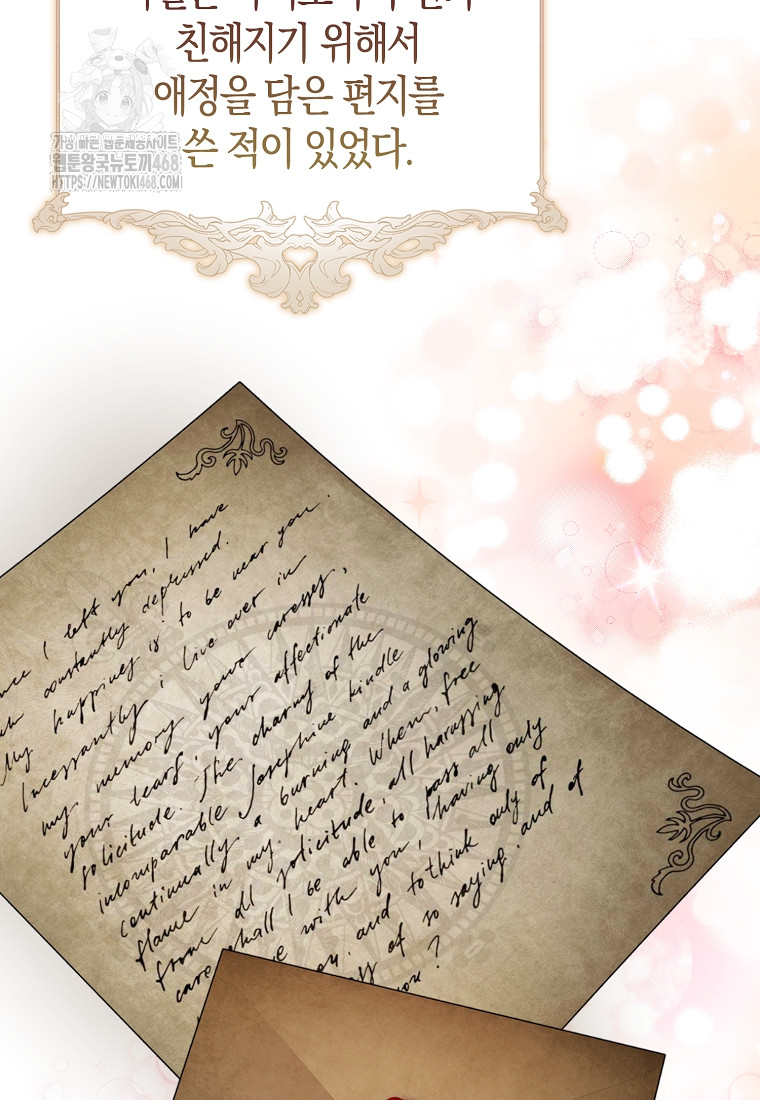 친해지기 위해서
애정을 담은 편지를
쓴 적이 있었다.
가장 빠른 웹툰제공사이트
웹툰왕국뉴토끼468
HTTPS://NEWTOKI468.COM
I left you, I have
constantly depressed.
My happiness is to be near you.
Incessantly i live over in
my memory your caresses,
your tears, your affectionate
solicitude. The charms of the
incomparable Josephine kindle
continually a burning and a glowing
flame in my heart. When, free
from all solicitude, all harassing
care, shall I be able to pass all
with you, having only
and to think only of
of so saying, and of
you?